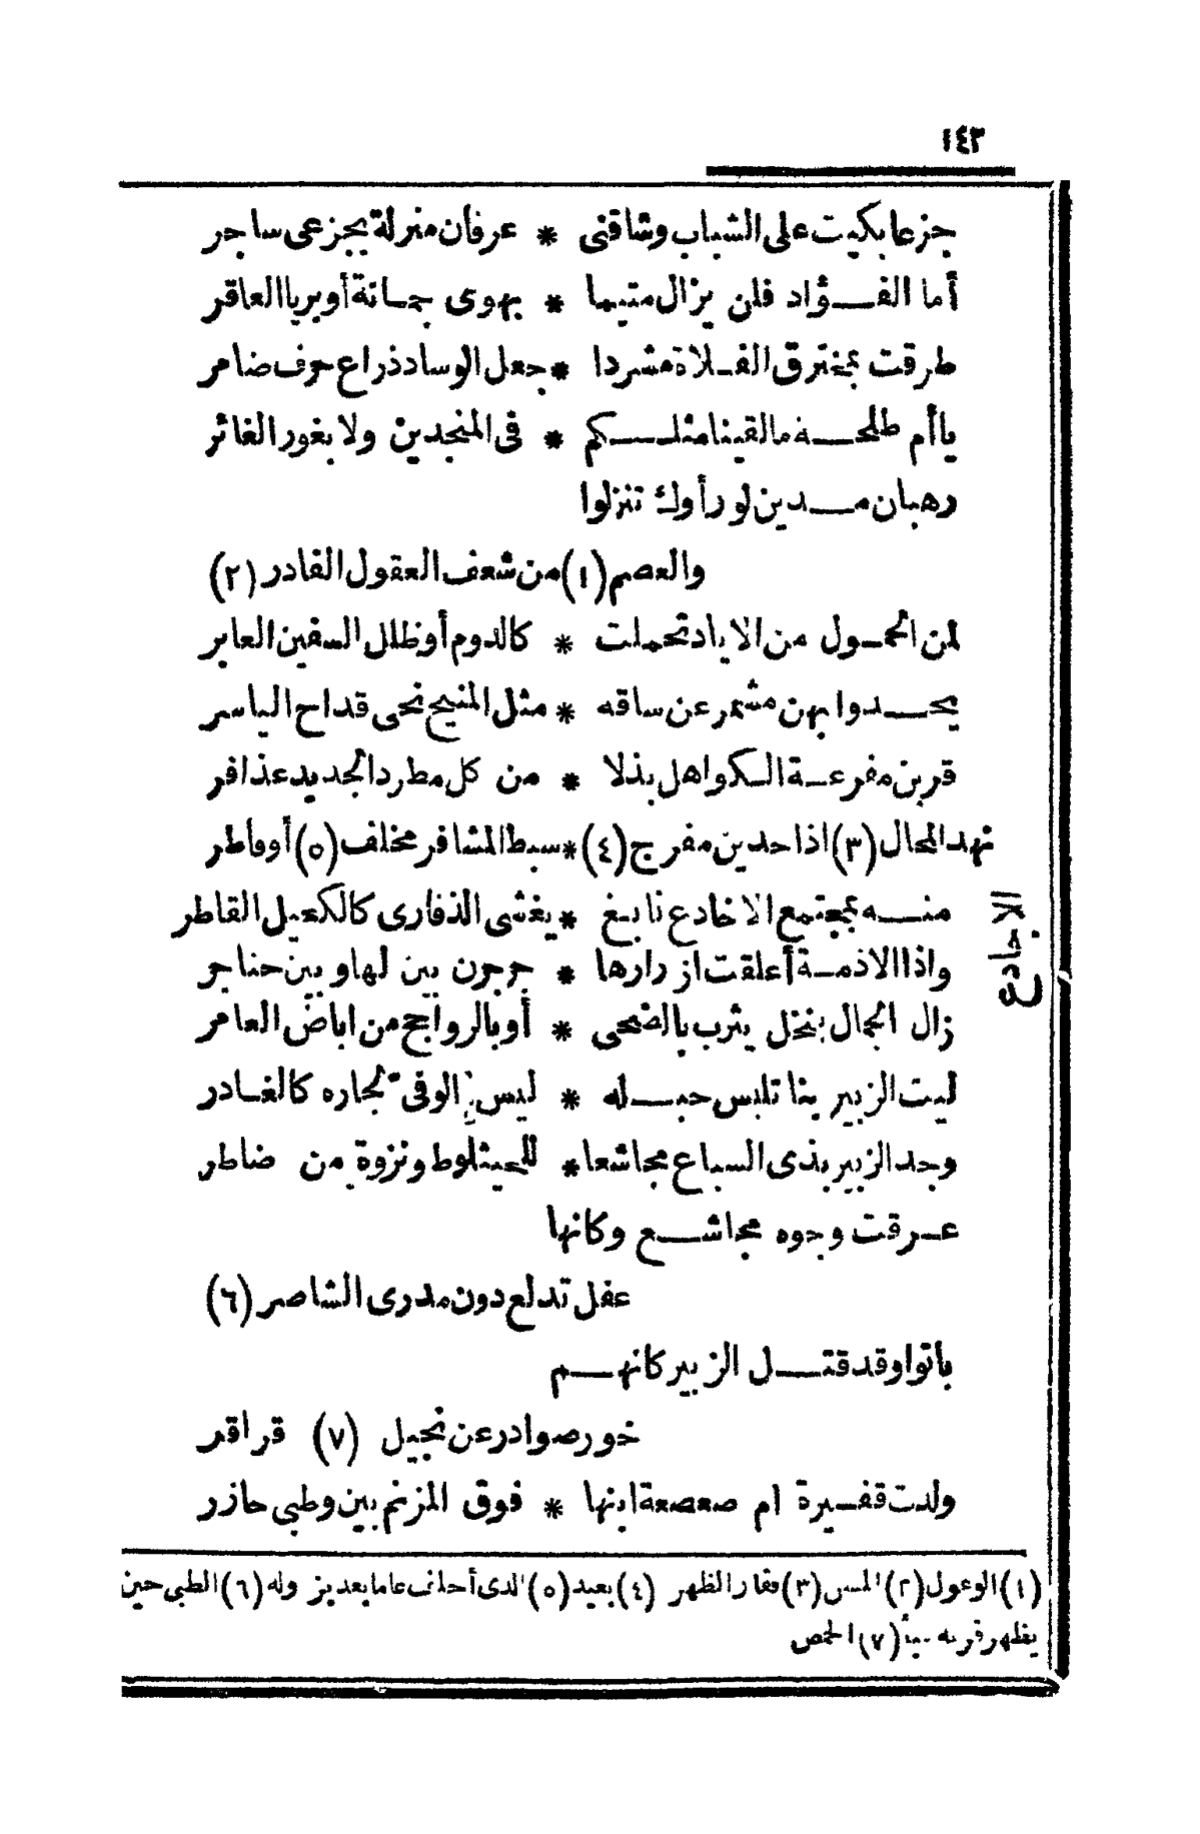 ١٤٣
جزعا بكيت على الشباب وشاقنى * عرفان منزلة بجزعى ساجر
أما الفؤاد فلن يزال متيما * بهوى جمانة أو بريا العاقر
طرقت بمخترق الفلاة مشردا * جعل الوساد ذراع حرف ضامر
ياأم طلحة ما لقينا مثلكم * فى المنجدين ولا بغور الغائر
رهبان مدين لو رأوك تنزلوا
والعصم (١) من شعف العقول الفادر (٢)
لمن الحمول من الاياد تحملت * كالدوم أو ظلل السفين العابر
يحدوا بهن مشمر عن ساقه * مثل المنيح نحى قداح الياسر
قربن مفرعة الكواهل بذلا * من كل مطرد الجديد عذافر
نهد المحال (٣) اذا حدين مفرج (٤) * سبط المشافر مخلف (٥) أو فاطر
منه بمجتمع الاخادع نابغ * يغشى الذفارى كالكحيل القاطر
الاخادع
واذا الازمة أعلقت ازرارها * جرجرن بين لها وبين حناجر
زال الجمال بنخل يثرب بالضحى * أو بالرواجح من اباض العامر
ليت الزبير بنا تلبس حبله * ليس الوفى لجاره كالغادر
وجد الزبير بذى السباع مجاشعا * للحيثلوط ونزوة من ضاطر
عرقت وجوه مجاشع وكانها
عفل تدلع دون مدرى الشاصر (٦)
باتوا وقد قتل الزبير كانهم
خور صوادر عن نجيل (٧) قراقر
ولدت قفيرة ام صعصعة ابنها * فوق المزنم بين وطبى حازر
(١) الوعول (٢) المسن (٣) فقار الظهر (٤) بعيد (٥) الذى أحانف عاما بعد بزوله (٦) الظبى حين
يظهر قرنه (٧) الحمص